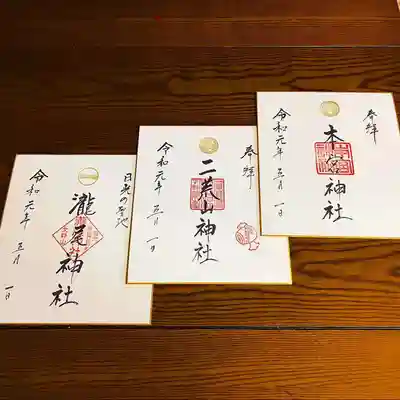 奉拝
本宮神社
令和元年五月一日
奉拝
二荒山神社
令和元年五月一日
日光の聖地
瀧尾神社
令和元年五月一日